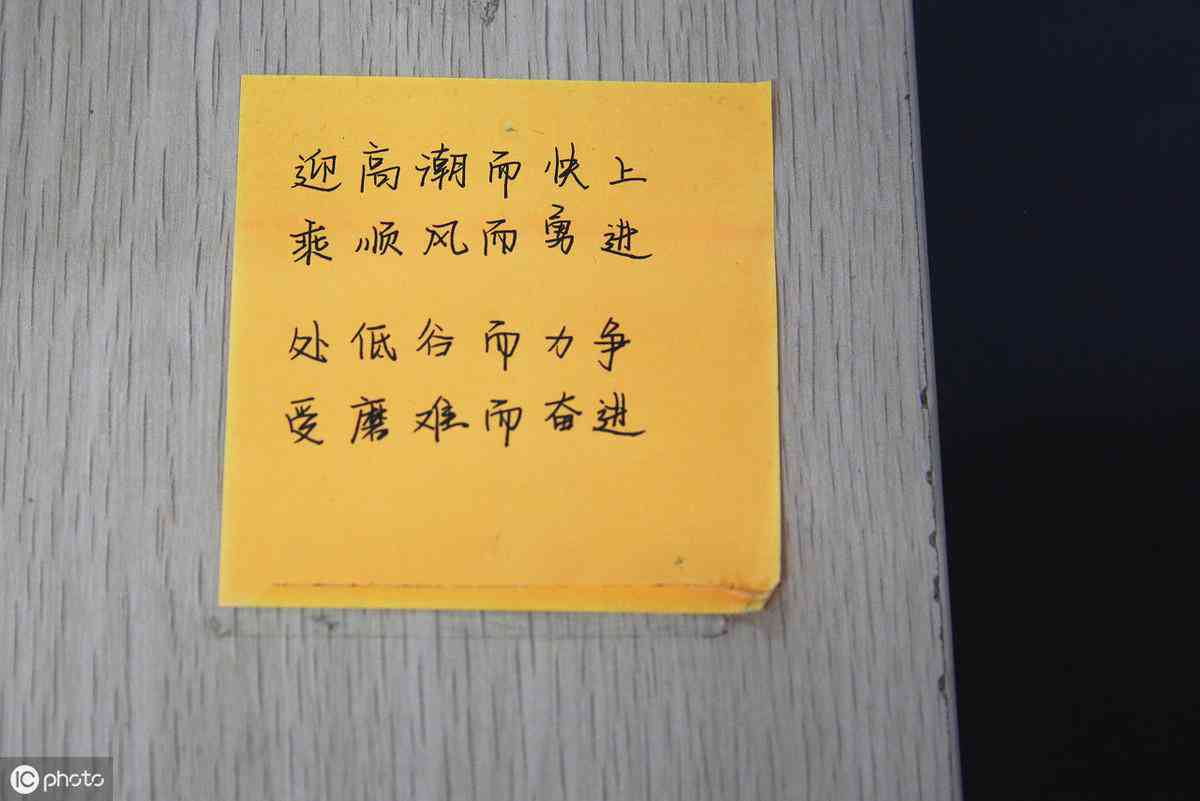 迎高潮而快上
乘顺风而勇进
处低谷而力争
受磨难而奋进
IC photo